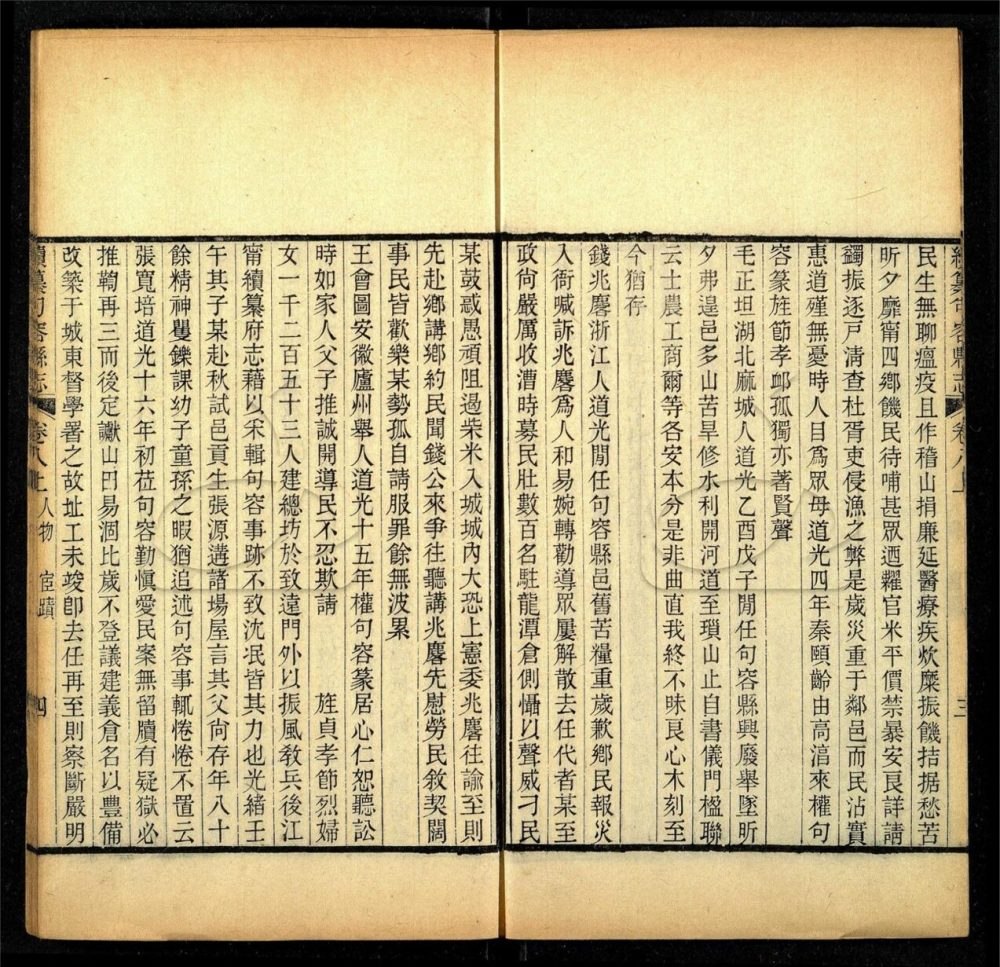 續纂句容縣志 卷八上 三
民生無聊瘟疫且作稽山捐廉延醫療疾炊糜振饑拮据愁苦
昕夕靡甯四鄉饑民待哺甚眾迺糶官米平價禁暴安良詳請
蠲振逐戸淸查杜胥吏侵漁之弊是歲災重于鄰邑而民沾實
惠道殣無憂時人目爲眾母道光四年秦頤齡由高淯來權句
容篆旌節孝卹孤獨亦著賢聲
毛正坦湖北麻城人道光乙酉戊子閒任句容縣興廢舉墜昕
夕弗遑邑多山苦旱修水利開河道至瑣山止自書儀門楹聯
云士農工商爾等各安本分是非曲直我終不昧良心木刻至
今猶存
錢兆麐浙江人道光閒任句容縣邑舊苦糧重歲歉鄉民報災
入衙喊訴兆麐爲人和易婉轉勸導眾屢解散去任代者某至
政尙嚴厲收漕時募民壯數百名駐龍潭倉側懾以聲威刁民
某鼓惑愚頑阻遏柴米入城城內大恐上憲委兆麐往諭至則
先赴鄉講鄉約民聞錢公來爭往聽講兆麐先慰勞民敘契闊
事民皆歡樂某勢孤自請服罪餘無波累
王會圖安徽廬州舉人道光十五年權句容篆居心仁恕聽訟
時如家人父子推誠開導民不忍欺請 旌貞孝節烈婦
女一千二百五十三人建總坊於致遠門外以振風敎兵後江
甯續纂府志藉以釆輯句容事跡不致沈泯皆其力也光緖壬
午其子某赴秋試邑貢生張源遘諸場屋言其父尙存年八十
餘精神矍鑠課幼子童孫之暇猶追述句容事輒惓惓不置云
張寬培道光十六年初莅句容勤愼愛民案無留牘有疑獄必
推鞫再三而後定讞山田易涸比歲不登議建義倉名以豐備
改築于城東督學署之故址工未竣卽去任再至則察斷嚴明
續纂句容縣志 卷八上 人物 宦蹟 四